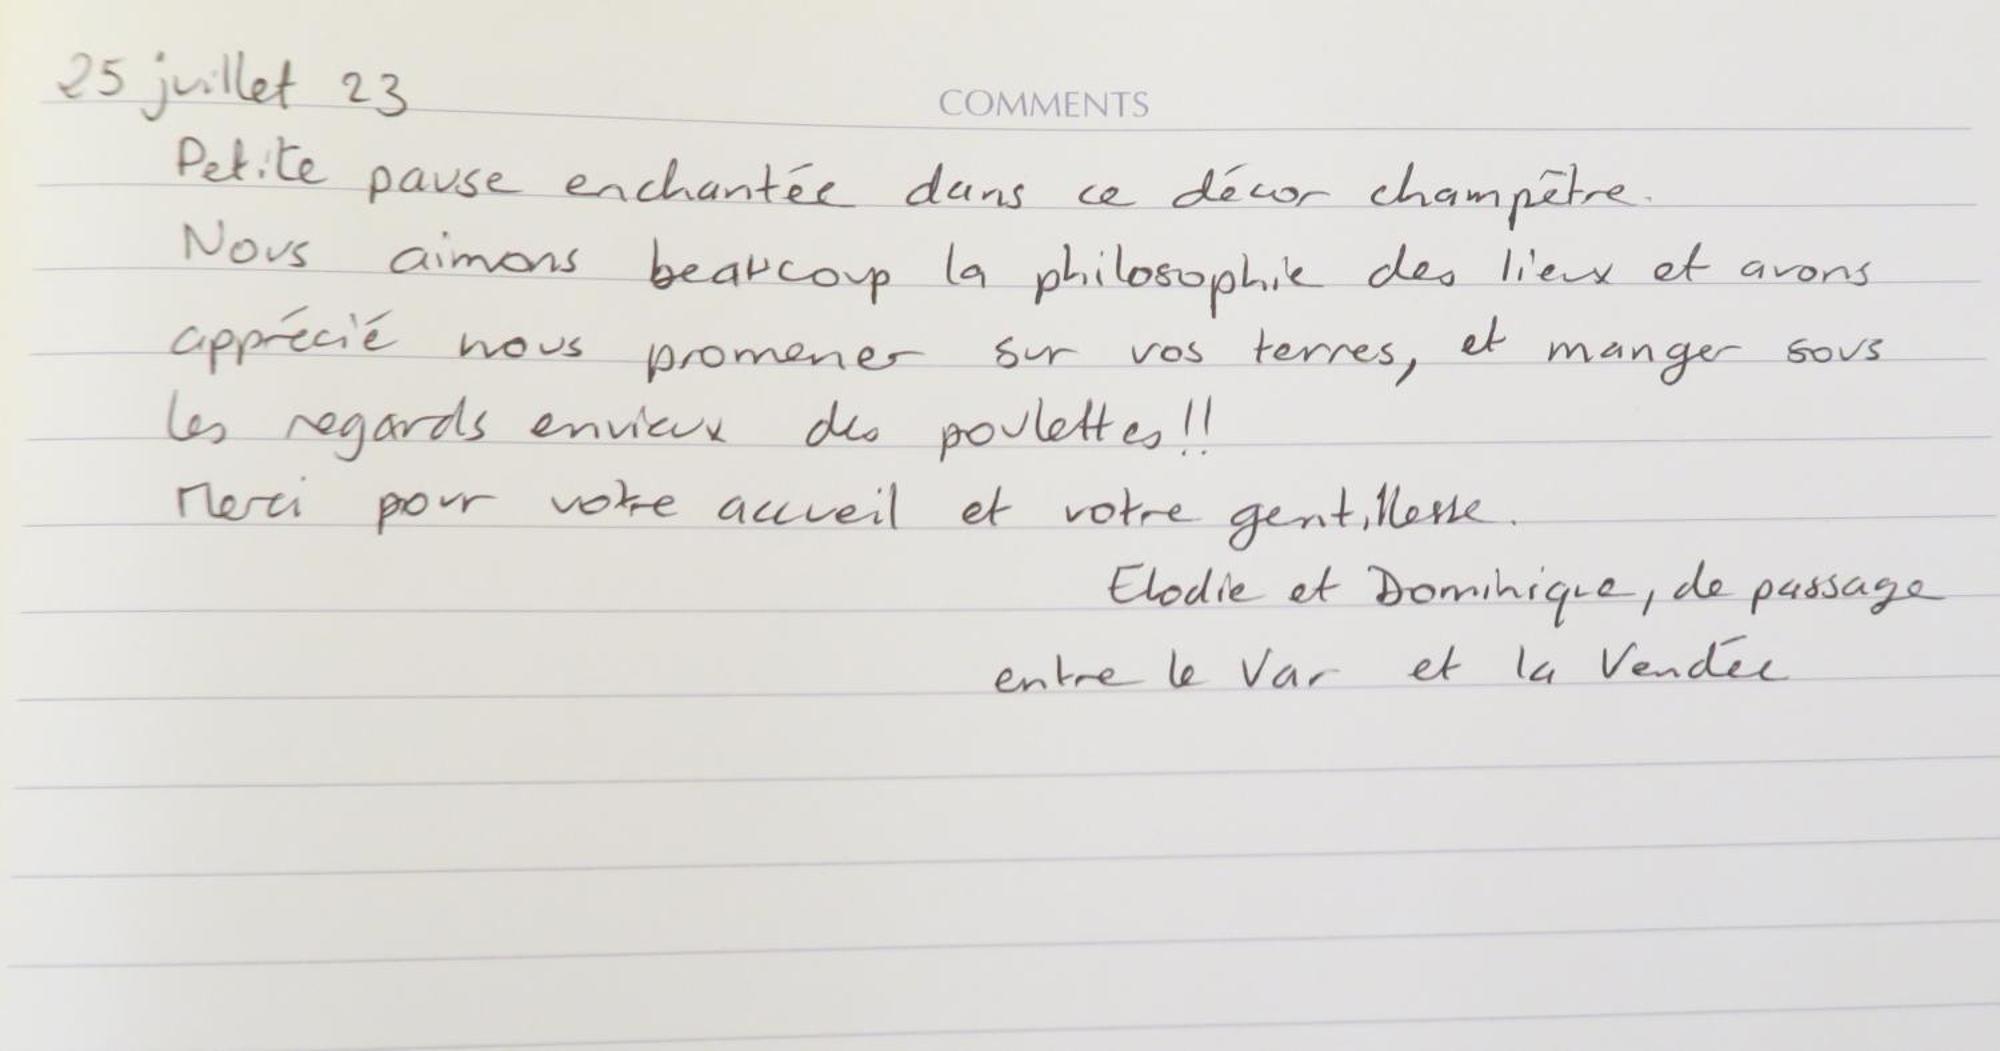 25 juillet 23
COMMENTS
Petite pause enchantée dans ce décor champêtre.
Nous aimons beaucoup la philosophie des lieux et avons
apprécié nous promener sur vos terres, et manger sous
les regards envieux des poulettes!!
Merci pour votre accueil et votre gentillesse.
Elodie et Dominique, de passage
entre le Var et la Vendée